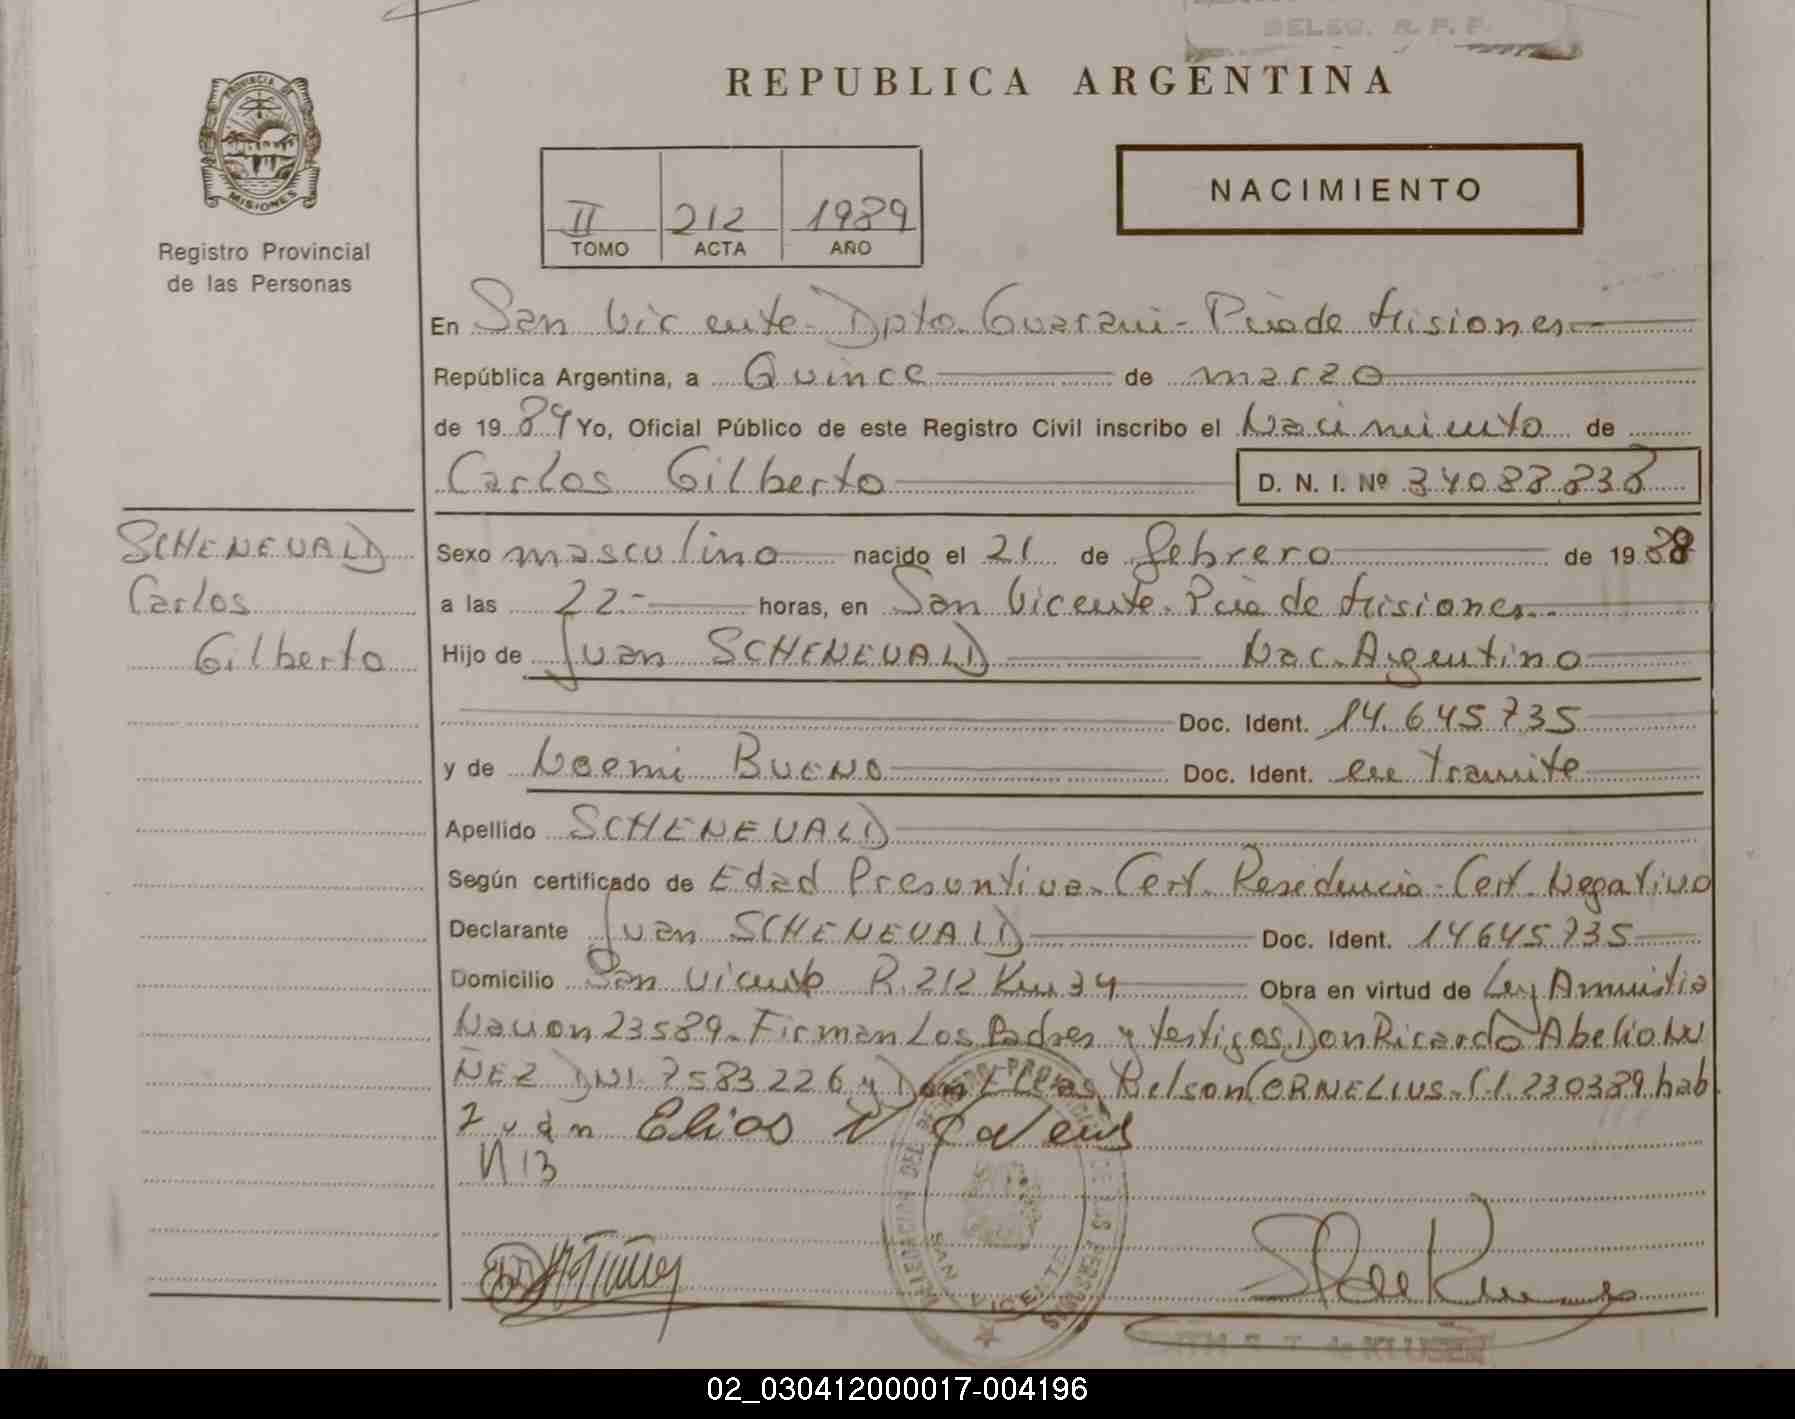 DELEG. R. P. P.
REPUBLICA ARGENTINA
PROVINCIA DE
MISIONES
Registro Provincial
de las Personas
NACIMIENTO
II 212 1989
TOMO ACTA AÑO
En San Vicente - Dpto. Guarani - Pcia de Misiones
República Argentina, a Quince de marzo
de 19 89 Yo, Oficial Público de este Registro Civil inscribo el Nacimiento de
Carlos Gilberto D. N. I. Nº 34088.838
SCHENEVALD
Carlos
Gilberto
Sexo masculino nacido el 21 de febrero de 19 88
a las 22.- horas, en San Vicente. Pcia de Misiones
Hijo de Juan SCHENEVALD Nac. Argentino
Doc. Ident. 14.645.735
y de Noemi BUENO Doc. Ident. en Tramite
Apellido SCHENEVALD
Según certificado de Edad Presuntiva - Cert. Residencia - Cert. Negativo
Declarante Juan SCHENEVALD Doc. Ident. 14645.735
Domicilio San Vicente R. 212 Km 34 Obra en virtud de Ley Amnistia
Nacion 23589. Firman Los Padres y testigos Don Ricardo Abelio NU
ÑEZ DNI. 7583226 y Don Elias Nelson CORNELIUS - C.I. 230389. hab
Juan Elias N
N 13
DELEGACION DEL REGISTRO PROVINCIAL DE LAS PERSONAS
SAN VICENTE
de KLUSEN
02_030412000017-004196